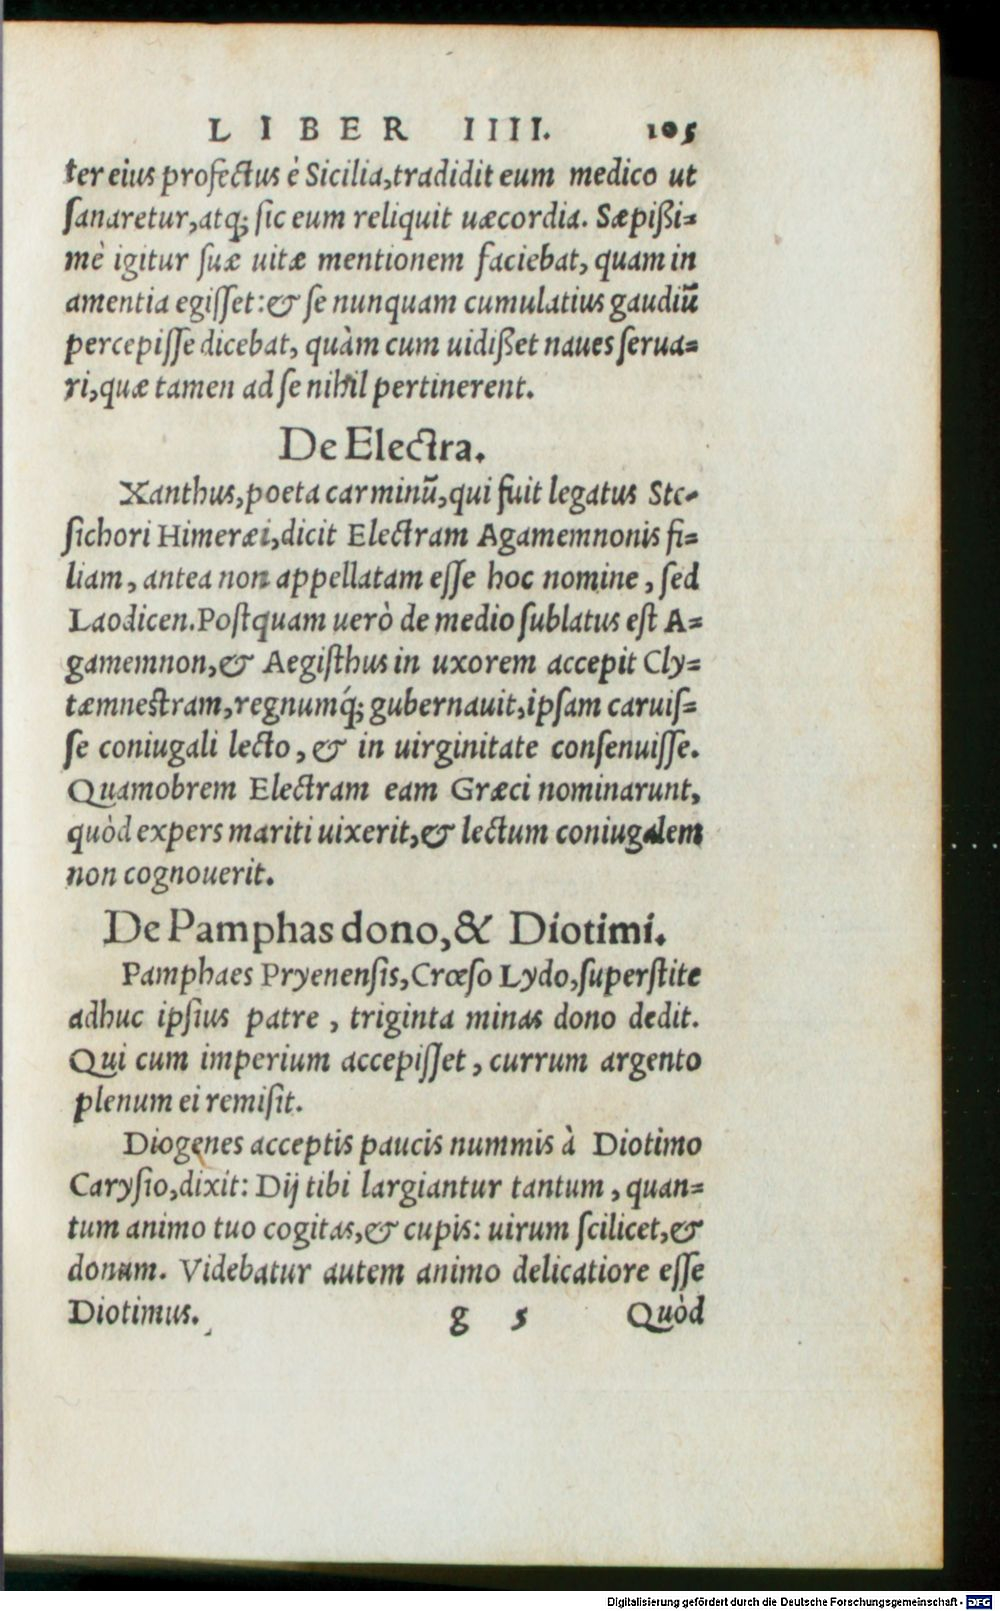 LIBER IIII. 105
ter eius profectus è Sicilia, tradidit eum medico ut
sanaretur, atq; sic eum reliquit uæcordia. Sæpißi=
mè igitur suæ uitæ mentionem faciebat, quam in
amentia egisset: & se nunquam cumulatius gaudiū
percepisse dicebat, quàm cum uidißet naues serua=
ri, quæ tamen ad se nihil pertinerent.
De Electra.
Xanthus, poeta carminū, qui fuit legatus Ste-
sichori Himeræi, dicit Electram Agamemnonis fi=
liam, antea non appellatam esse hoc nomine, sed
Laodicen. Postquam uerò de medio sublatus est A=
gamemnon, & Aegisthus in uxorem accepit Cly=
tæmnestram, regnumq́; gubernauit, ipsam caruis=
se coniugali lecto, & in uirginitate consenuisse.
Quamobrem Electram eam Græci nominarunt,
quòd expers mariti uixerit, & lectum coniugalem
non cognouerit.
De Pamphas dono, & Diotimi.
Pamphaes Pryenensis, Crœso Lydo, superstite
adhuc ipsius patre, triginta minas dono dedit.
Qui cum imperium accepisset, currum argento
plenum ei remisit.
Diogenes acceptis paucis nummis à Diotimo
Carysio, dixit: Dij tibi largiantur tantum, quan=
tum animo tuo cogitas, & cupis: uirum scilicet, &
donum. Videbatur autem animo delicatiore esse
Diotimus. g 5 Quòd
Digitalisierung gefördert durch die Deutsche Forschungsgemeinschaft - DFG